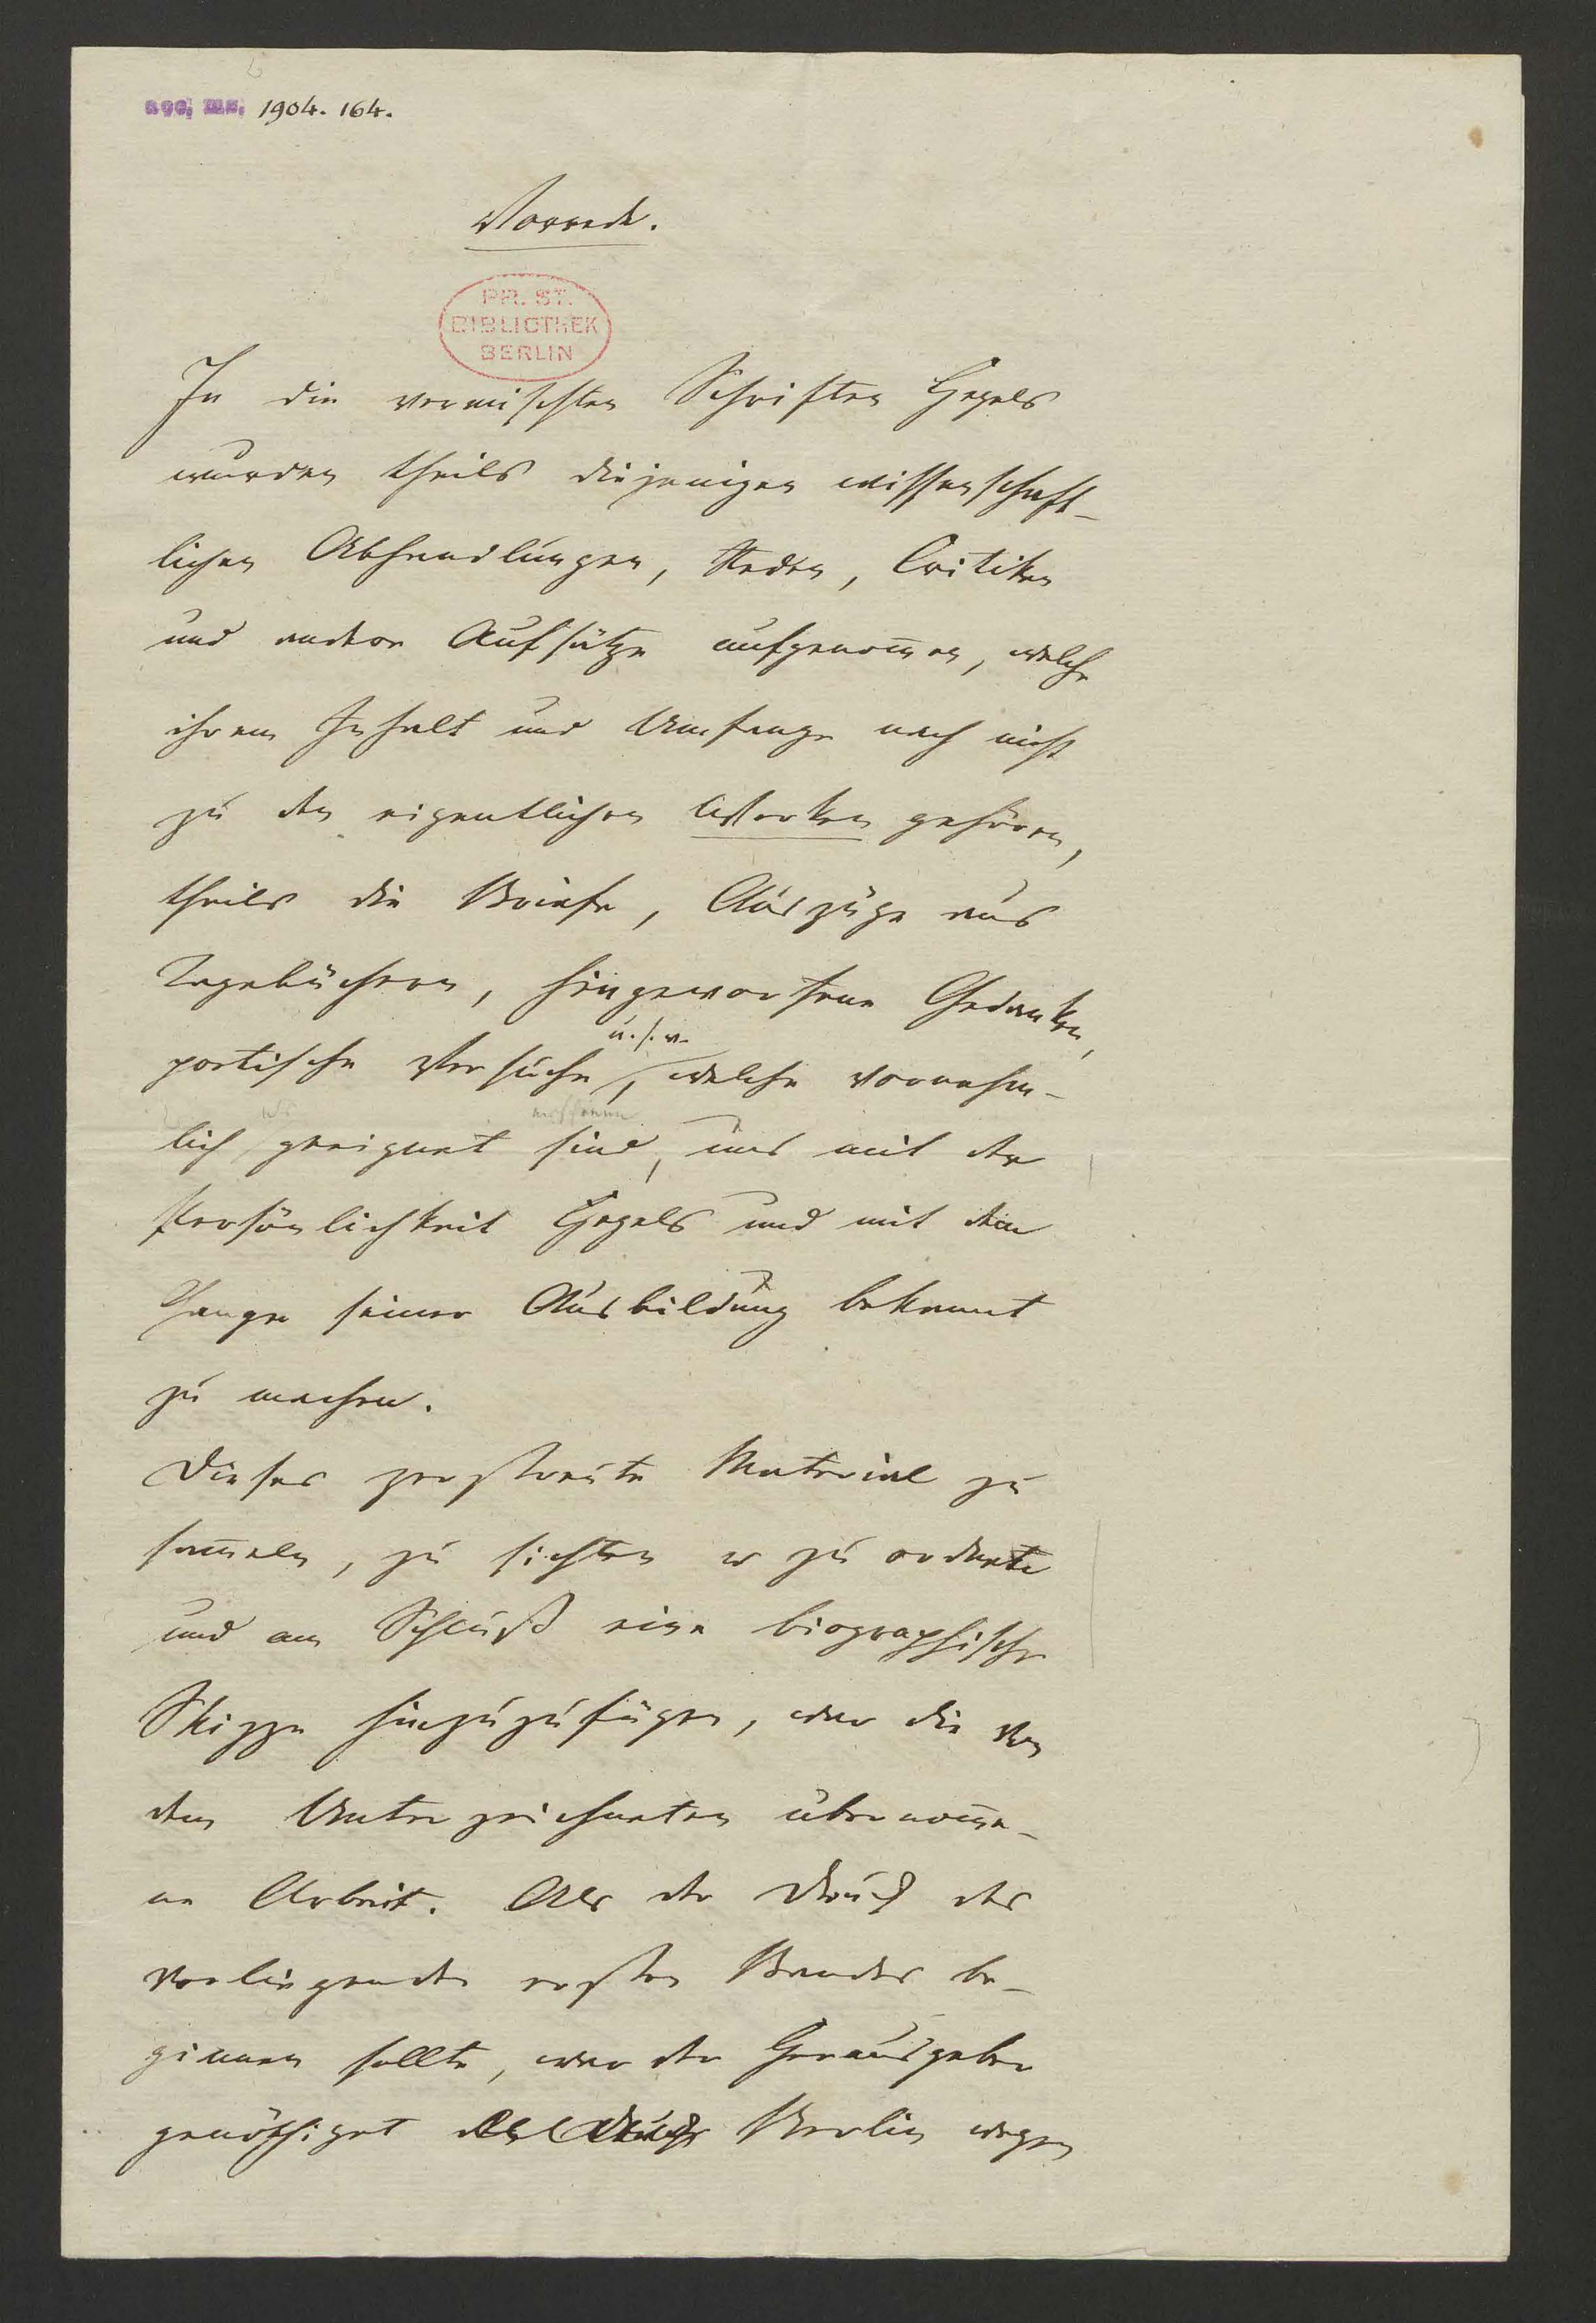 acc. ms. 1904. 164.
Vorrede.
PR. ST.
BIBLIOTHEK
BERLIN
In die vermischten Schriften Hegels
wurden theils diejenigen wissenschaft-
lichen Abhandlungen, Reden, Critiken
und andere Aufsätze aufgenom̅en, welche
ihrem Inhalt und Umfange nach nicht
zu den eigentlichen Werken gehören,
theils die Briefe, Auszüge aus
Tagebüchern, hingeworfene Gedanken,
u. s. w.
poetische Versuche, welche vornehm-
lich geeignet sind, uns mit der
Persönlichkeit Hegels und mit dem
Gange seiner Ausbildung bekannt
zu machen.
Dieses zerstreute Material zu
sam̅eln, zu sichten u zu ordnen
und am Schluß eine biographische
Skizze hinzuzufügen, war die von
dem Unterzeichneten übernom̅e-
ne Arbeit. Als der Druck des
vorliegenden ersten Bandes be-
ginnen sollte, war der Herausgeber
genöthiget Berlin wegen